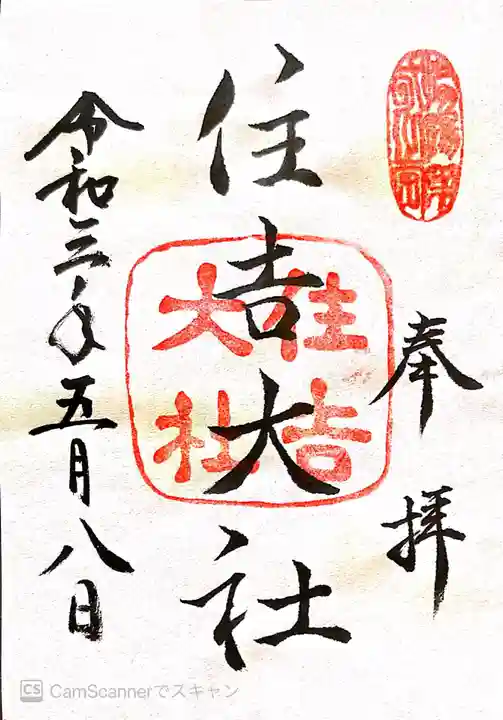 奉拝
住吉大社
住吉
大社
令和三年五月八日
CS CamScannerでスキャン